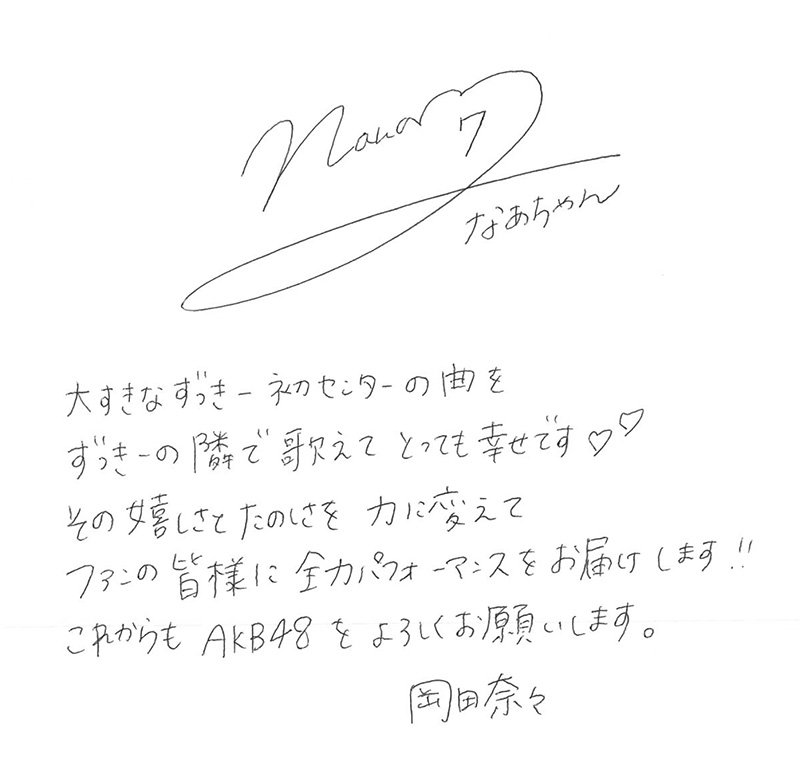 Nana
7
なぁちゃん
大すきなずっきー初センターの曲を
ずっきーの隣で歌えてとっても幸せです♡♡
その嬉しさとたのしさを力に変えて
ファンの皆様に全力パフォーマンスをお届けします!!
これからもAKB48をよろしくお願いします。
岡田奈々